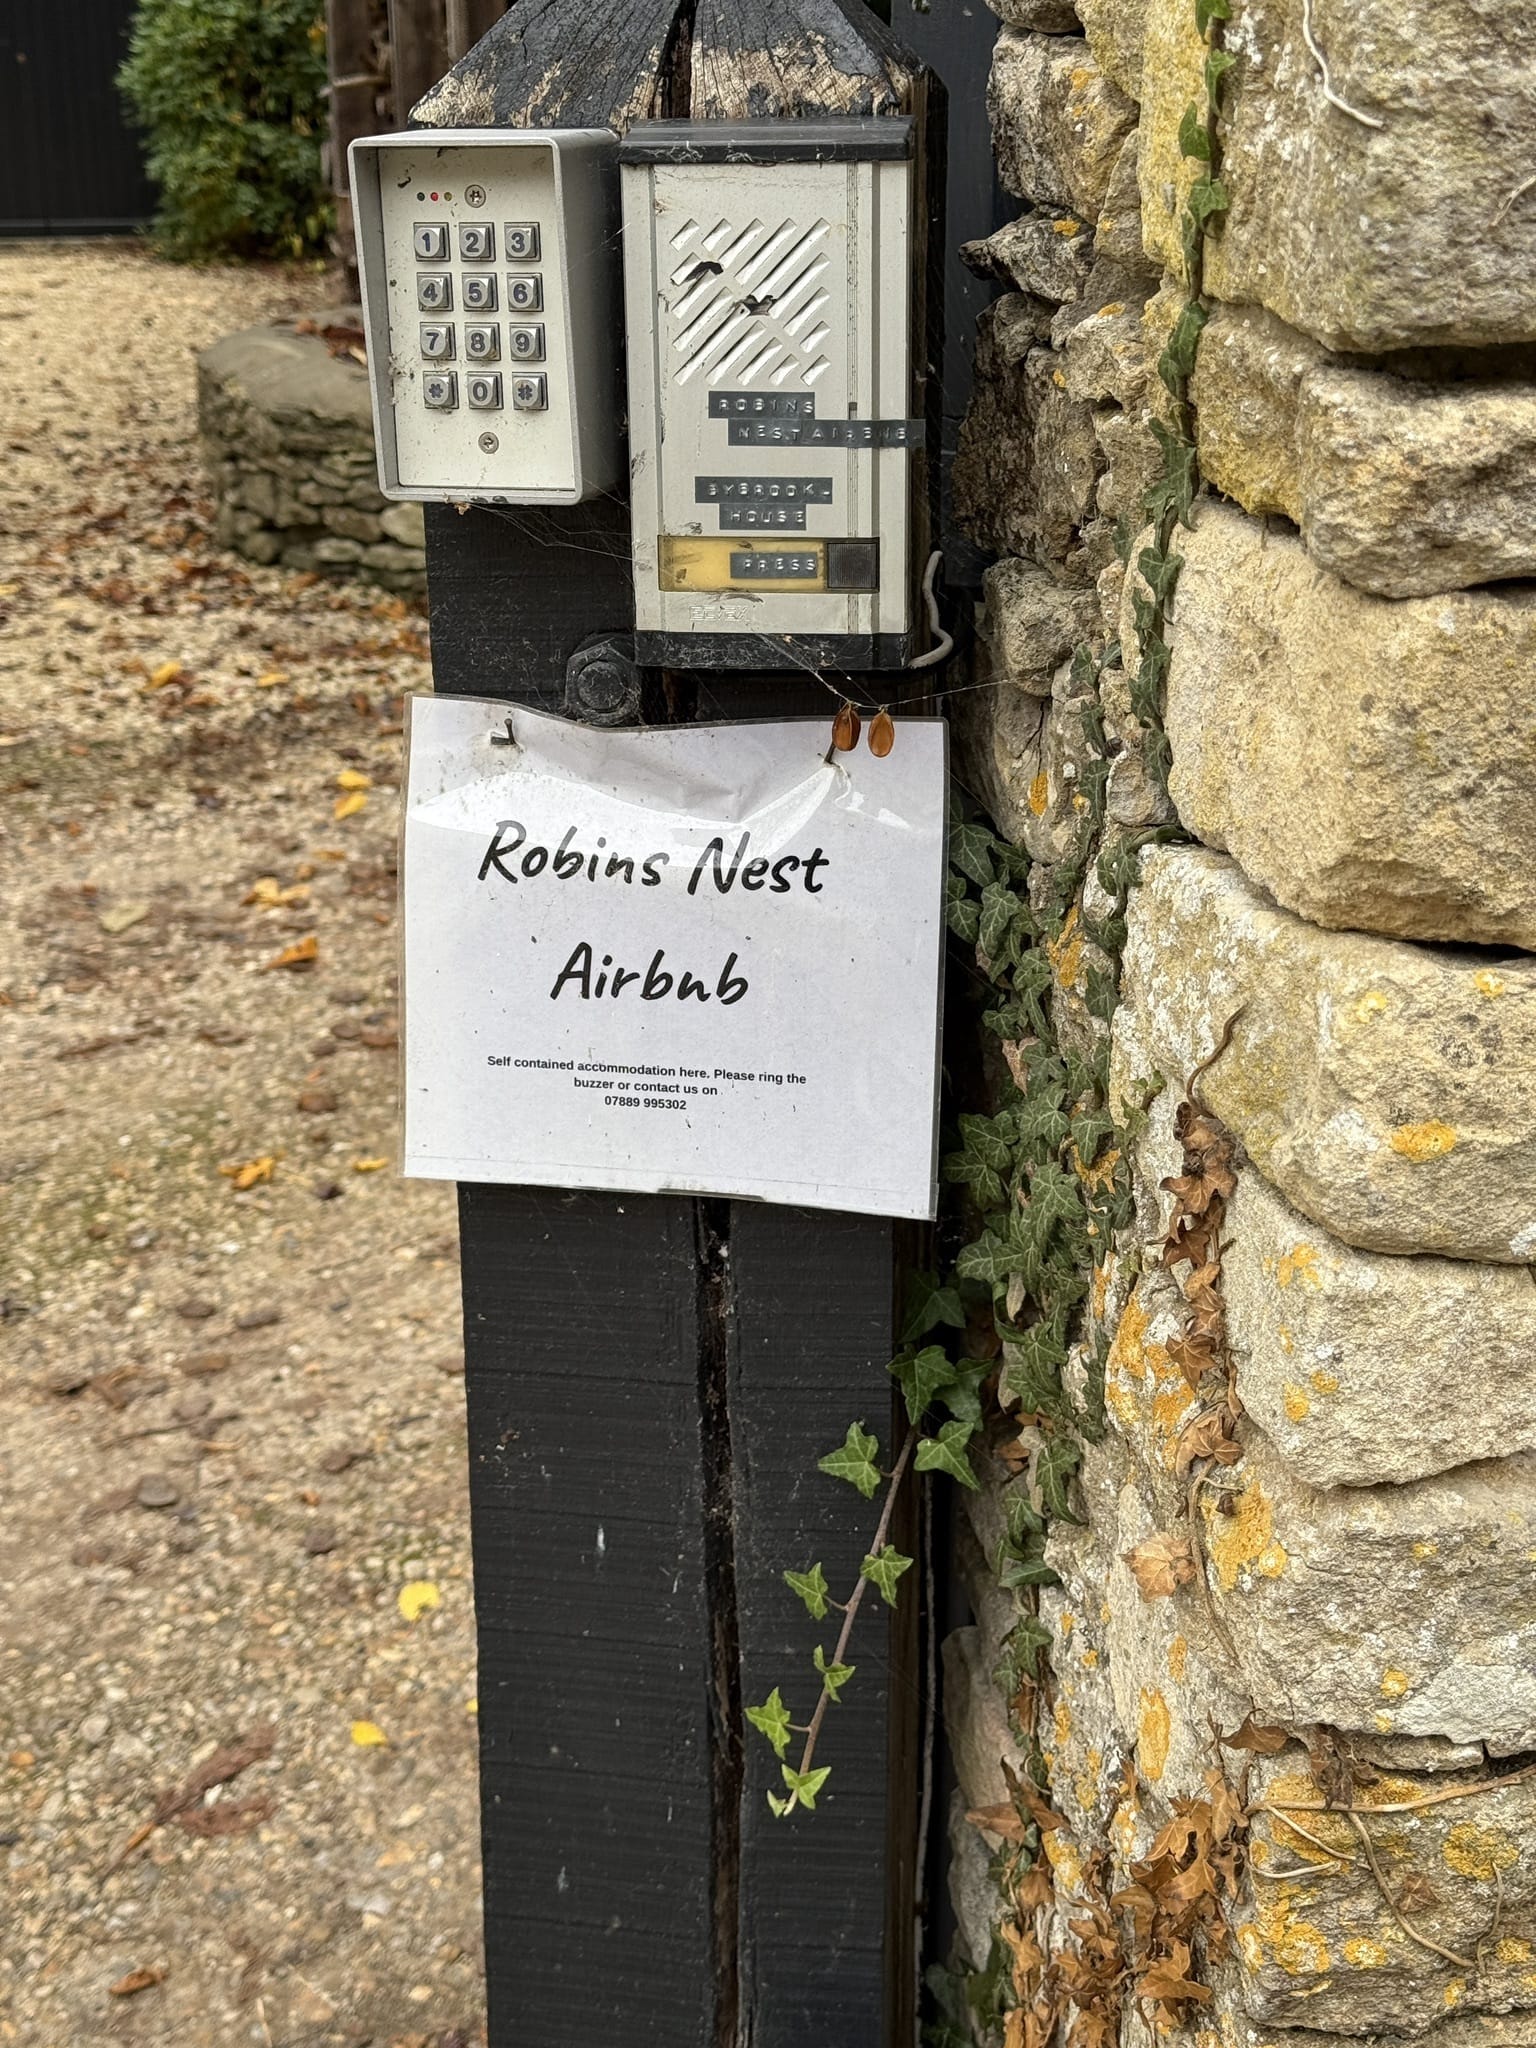 1 2 3
4 5 6
7 8 9
* 0 #
ROBINS
NEST AIRBNB
BYBROOK
HOUSE
PRESS
Robins Nest
Airbnb
Self contained accommodation here. Please ring the
buzzer or contact us on
07889 995302